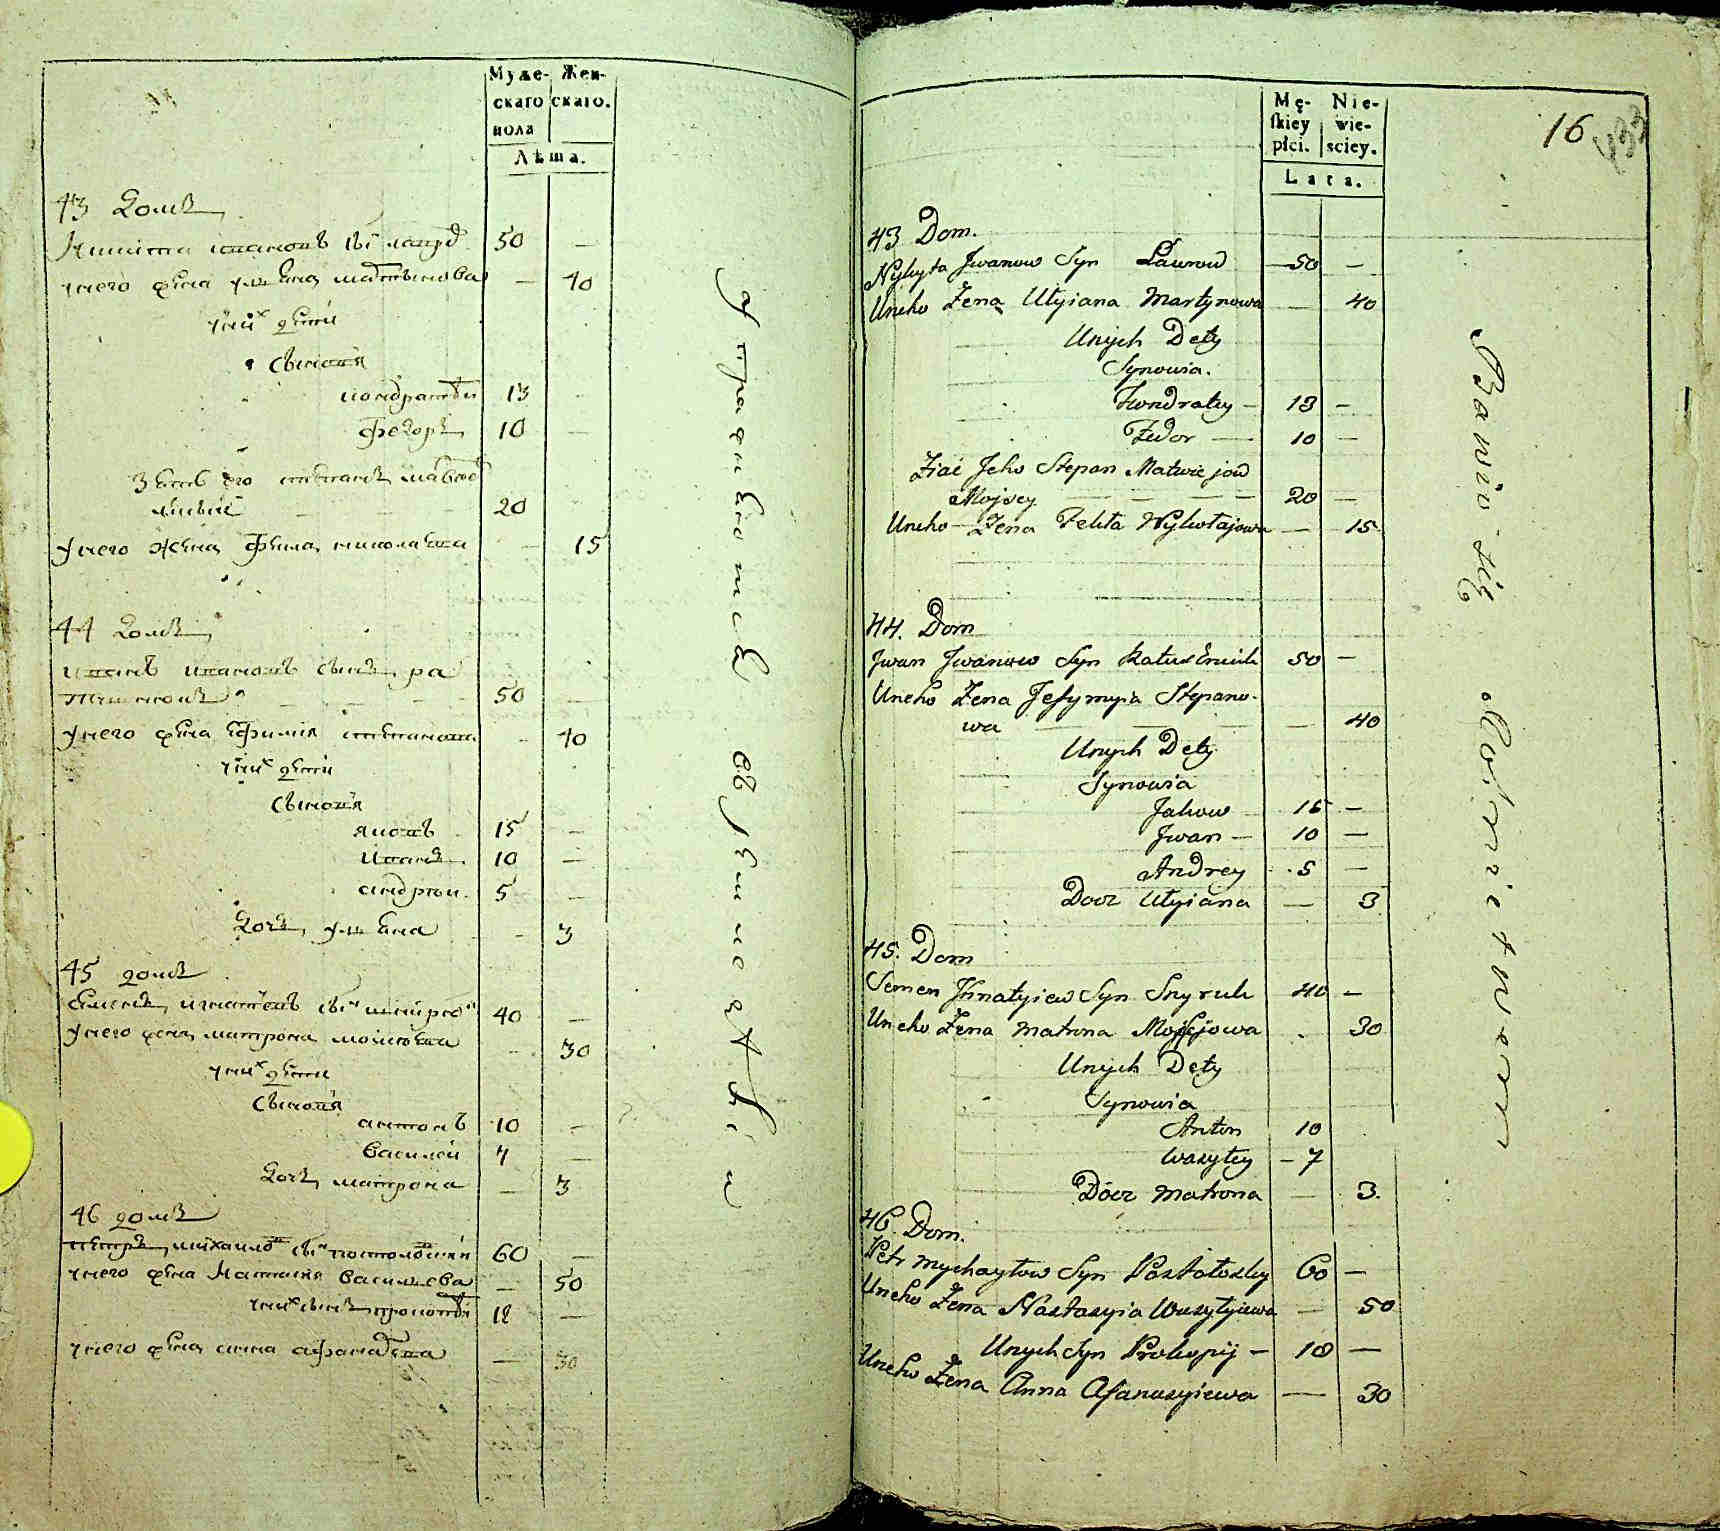 Муже- Жен-
скаго скаго.
пола
Лѣта.
43 домъ
Никита ивановъ сынъ
50 —
у него жена ульяна мартынова — 40
у них дети
сыновя
кондратѣи 13 —
федоръ 10 —
зять его степанъ
20
у него жена фекла николаева — 15
44 домъ
иванъ ивановъ сынъ ра
50 —
у него жена ефимия степанова — 40
у них дети
сыновя
яковъ 15 —
иванъ 10 —
андреи 5 —
дочь ульяна — 3
45 домъ
семенъ игнатевъ сынъ 40 —
у него жена матрона моисеева — 30
у них дети
сыновя
антонъ 10 —
василеи 7 —
дочь матрона — 3
46 домъ
петръ михаилов сынъ 60 —
у него жена настасия васильева — 50
у них сынъ прокофѣи 18 —
у него жена анна афанасева — 30
Упражняются въ
16
433
Mę- Nie-
skiey wie-
płci. sciey.
Lata.
43 Dom.
Nykyta Jwanow Syn Ławrow 50 —
Uneho Żena Ulyiana Martynowa — 40
Unych Dety
Synowia.
Kondratey — 13 —
Fedor — 10 —
Ziać Jeho Stepan Matwiejow
Mojsey — — — — 20 —
Uneho Żena Fekła Nykołajowa — 15
44. Dom
Jwan Jwanow Syn 50 —
Uneho Żena Jefymyia Stepano-
wa — 40
Unych Dety
Synowia
Jakow 15 —
Jwan — 10 —
Andrey 5 —
Docz Ulyiana — 3
45. Dom
Semen Jhnatyiew Syn Snyruk 40 —
Uneho Żena Matrona Mojsejowa 30
Unych Dety
Synowia
Anton 10
Wasyley — 7
Docz Matrona — 3.
46. Dom.
Petr Mychayłow Syn Postołoskey 60 —
Uneho Żena Nastasyia Wasylyiewa — 50
Unych Syn Prokopij — 18 —
Uneho Żena Anna Afanasyiewa — 30
Bawią się Rolnictwem